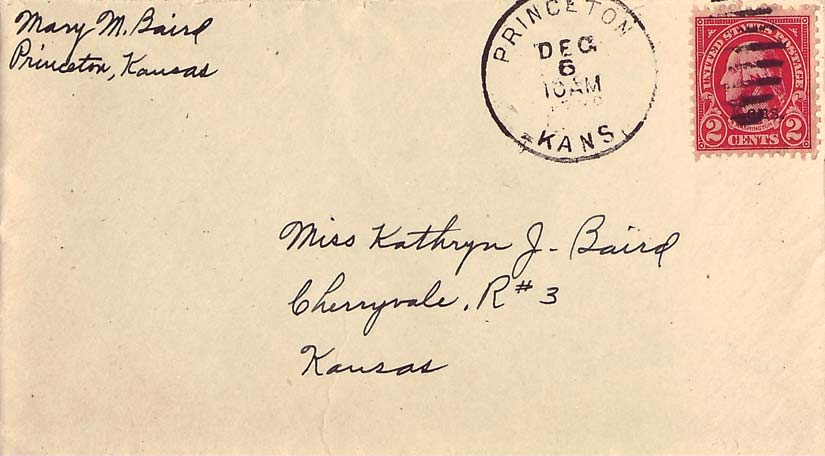 Mary M. Baird
Princeton, Kansas
PRINCETON
DEC
6
10AM
KANS
UNITED STATES POSTAGE
Kans.
WASHINGTON
2 CENTS 2
Miss Kathryn J. Baird
Cherryvale, R#3
Kansas